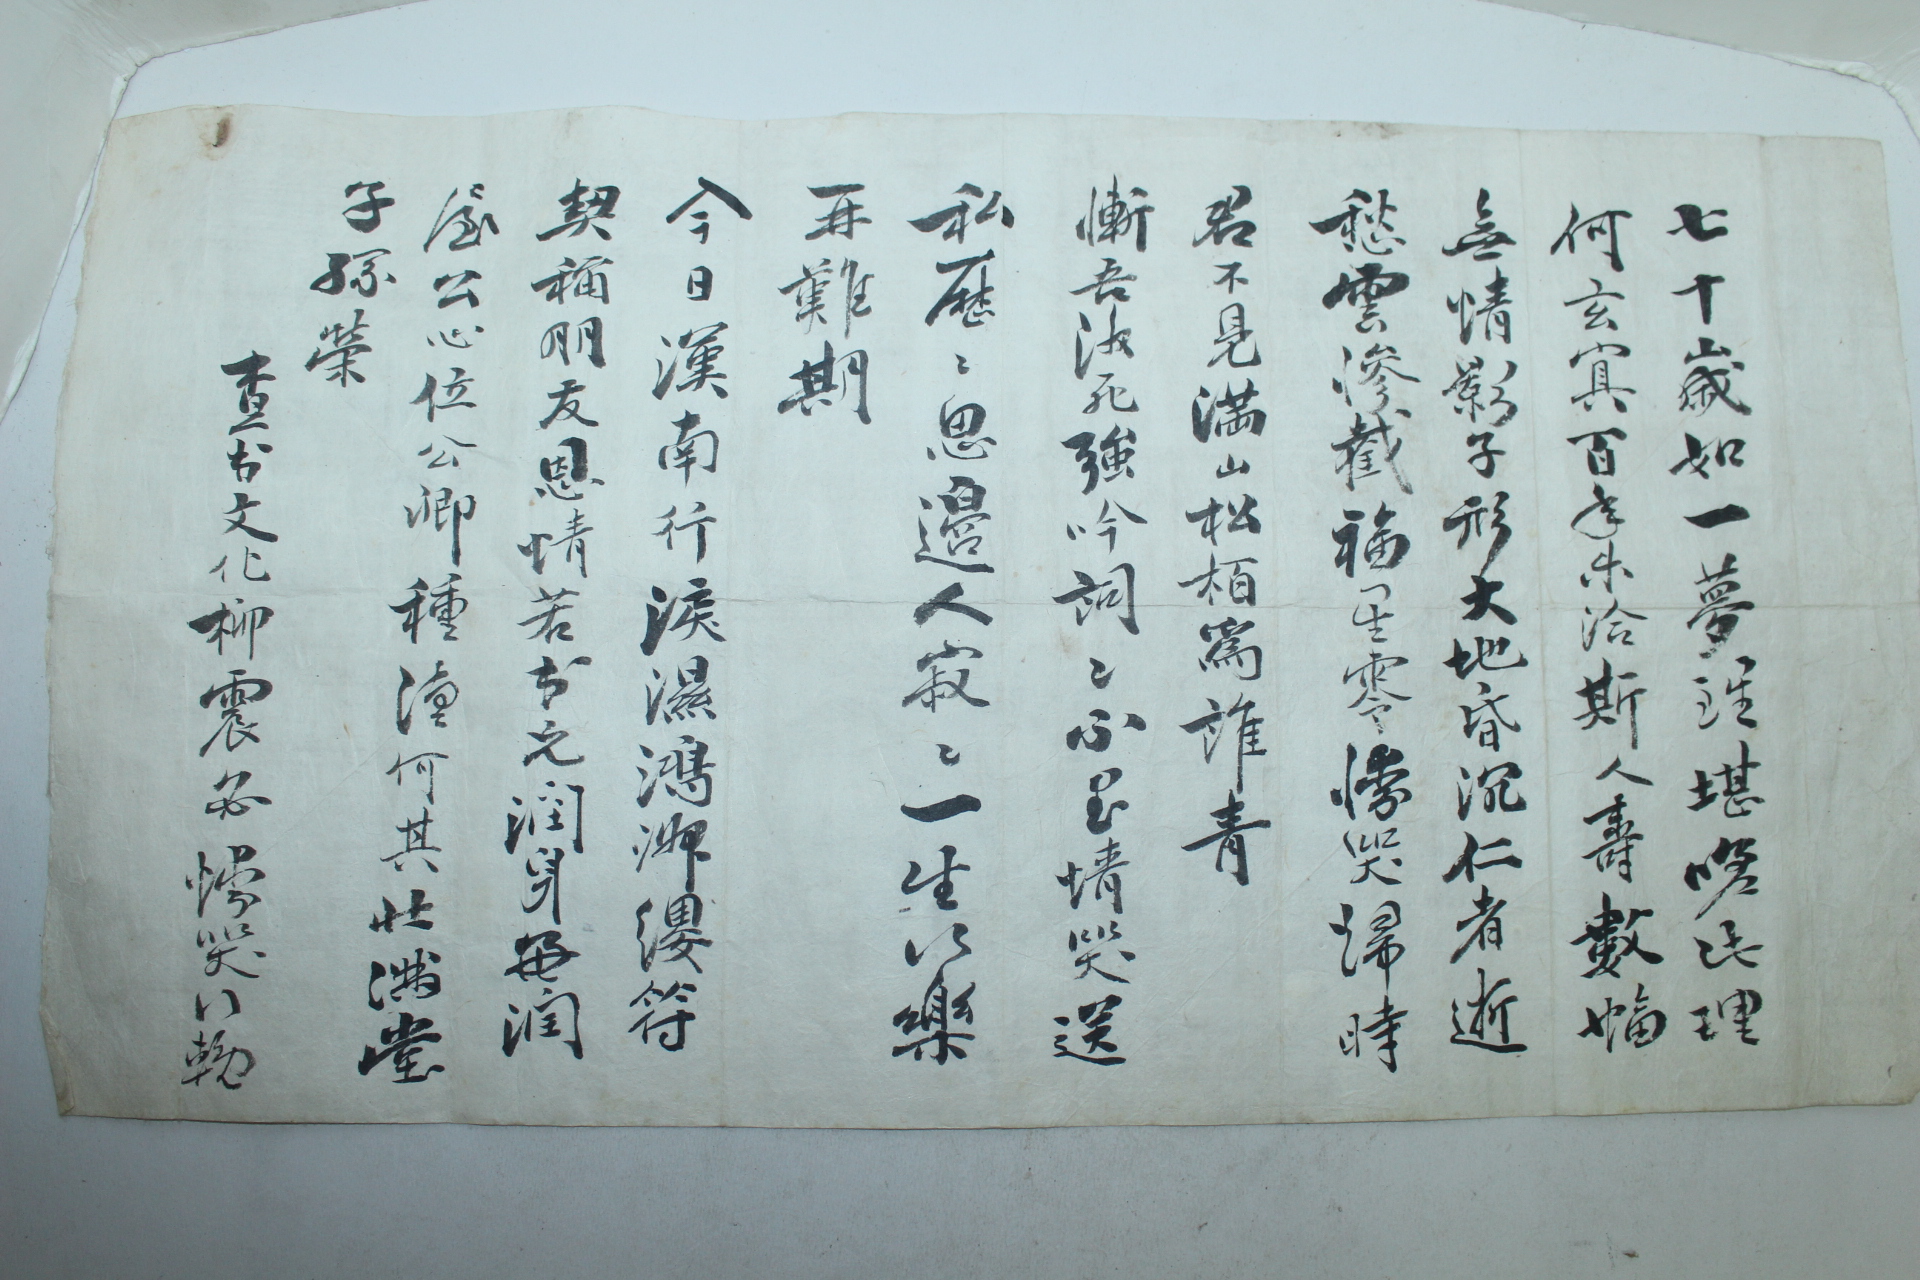 七十歲如一夢誰堪喚此理
何玄冥百年未洽斯人壽數幅
無情影子形大地昏沉仁者逝
愁雲慘截福星零慟哭歸時
君不見滿山松栢爲誰青
慚吾沒死強吟詞〻不至情哭送
私歷〻思邉人寂〻一生行樂
再難期
今日漢南行淚濕鴻 纓符
契稱朋友恩情若 兄潤身 潤
屋公心位公卿種德何其壯滿堂
子孫榮
查 文化柳震 慟哭 輓